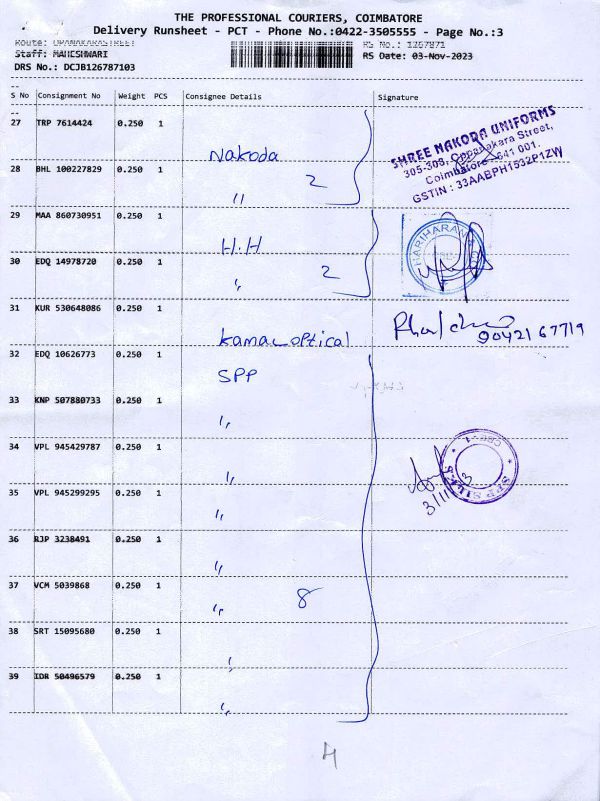 THE PROFESSIONAL COURIERS, COIMBATORE
Delivery Runsheet - PCT - Phone No.:0422-3505555 - Page No.:3
Route: OPANAKARASTREET RS No.: 1267871
Staff: MAHESHWARI RS Date: 03-Nov-2023
DRS No.: DCJB126787103
S No Consignment No Weight PCS Consignee Details Signature
27 TRP 7614424 0.250 1 Nakoda
28 BHL 100227829 0.250 1 " 2
SHREE NAKODA UNIFORMS
305-308, Oppanakara Street,
Coimbatore - 641 001.
GSTIN : 33AABPH1632P1ZW
29 MAA 860730951 0.250 1 H.H
30 EDQ 14978720 0.250 1 " 2
HARIHARAN
31 KUR 530648086 0.250 1 kamal optical
90421 67719
32 EDQ 10626773 0.250 1 SPP
33 KNP 507880733 0.250 1 "
34 VPL 945429787 0.250 1 "
35 VPL 945299295 0.250 1 "
SPP SILKS
CBE-1
36 RJP 3238491 0.250 1 "
37 VCM 5039868 0.250 1 " 8
38 SRT 15095680 0.250 1 "
39 IDR 50496579 0.250 1 "
4